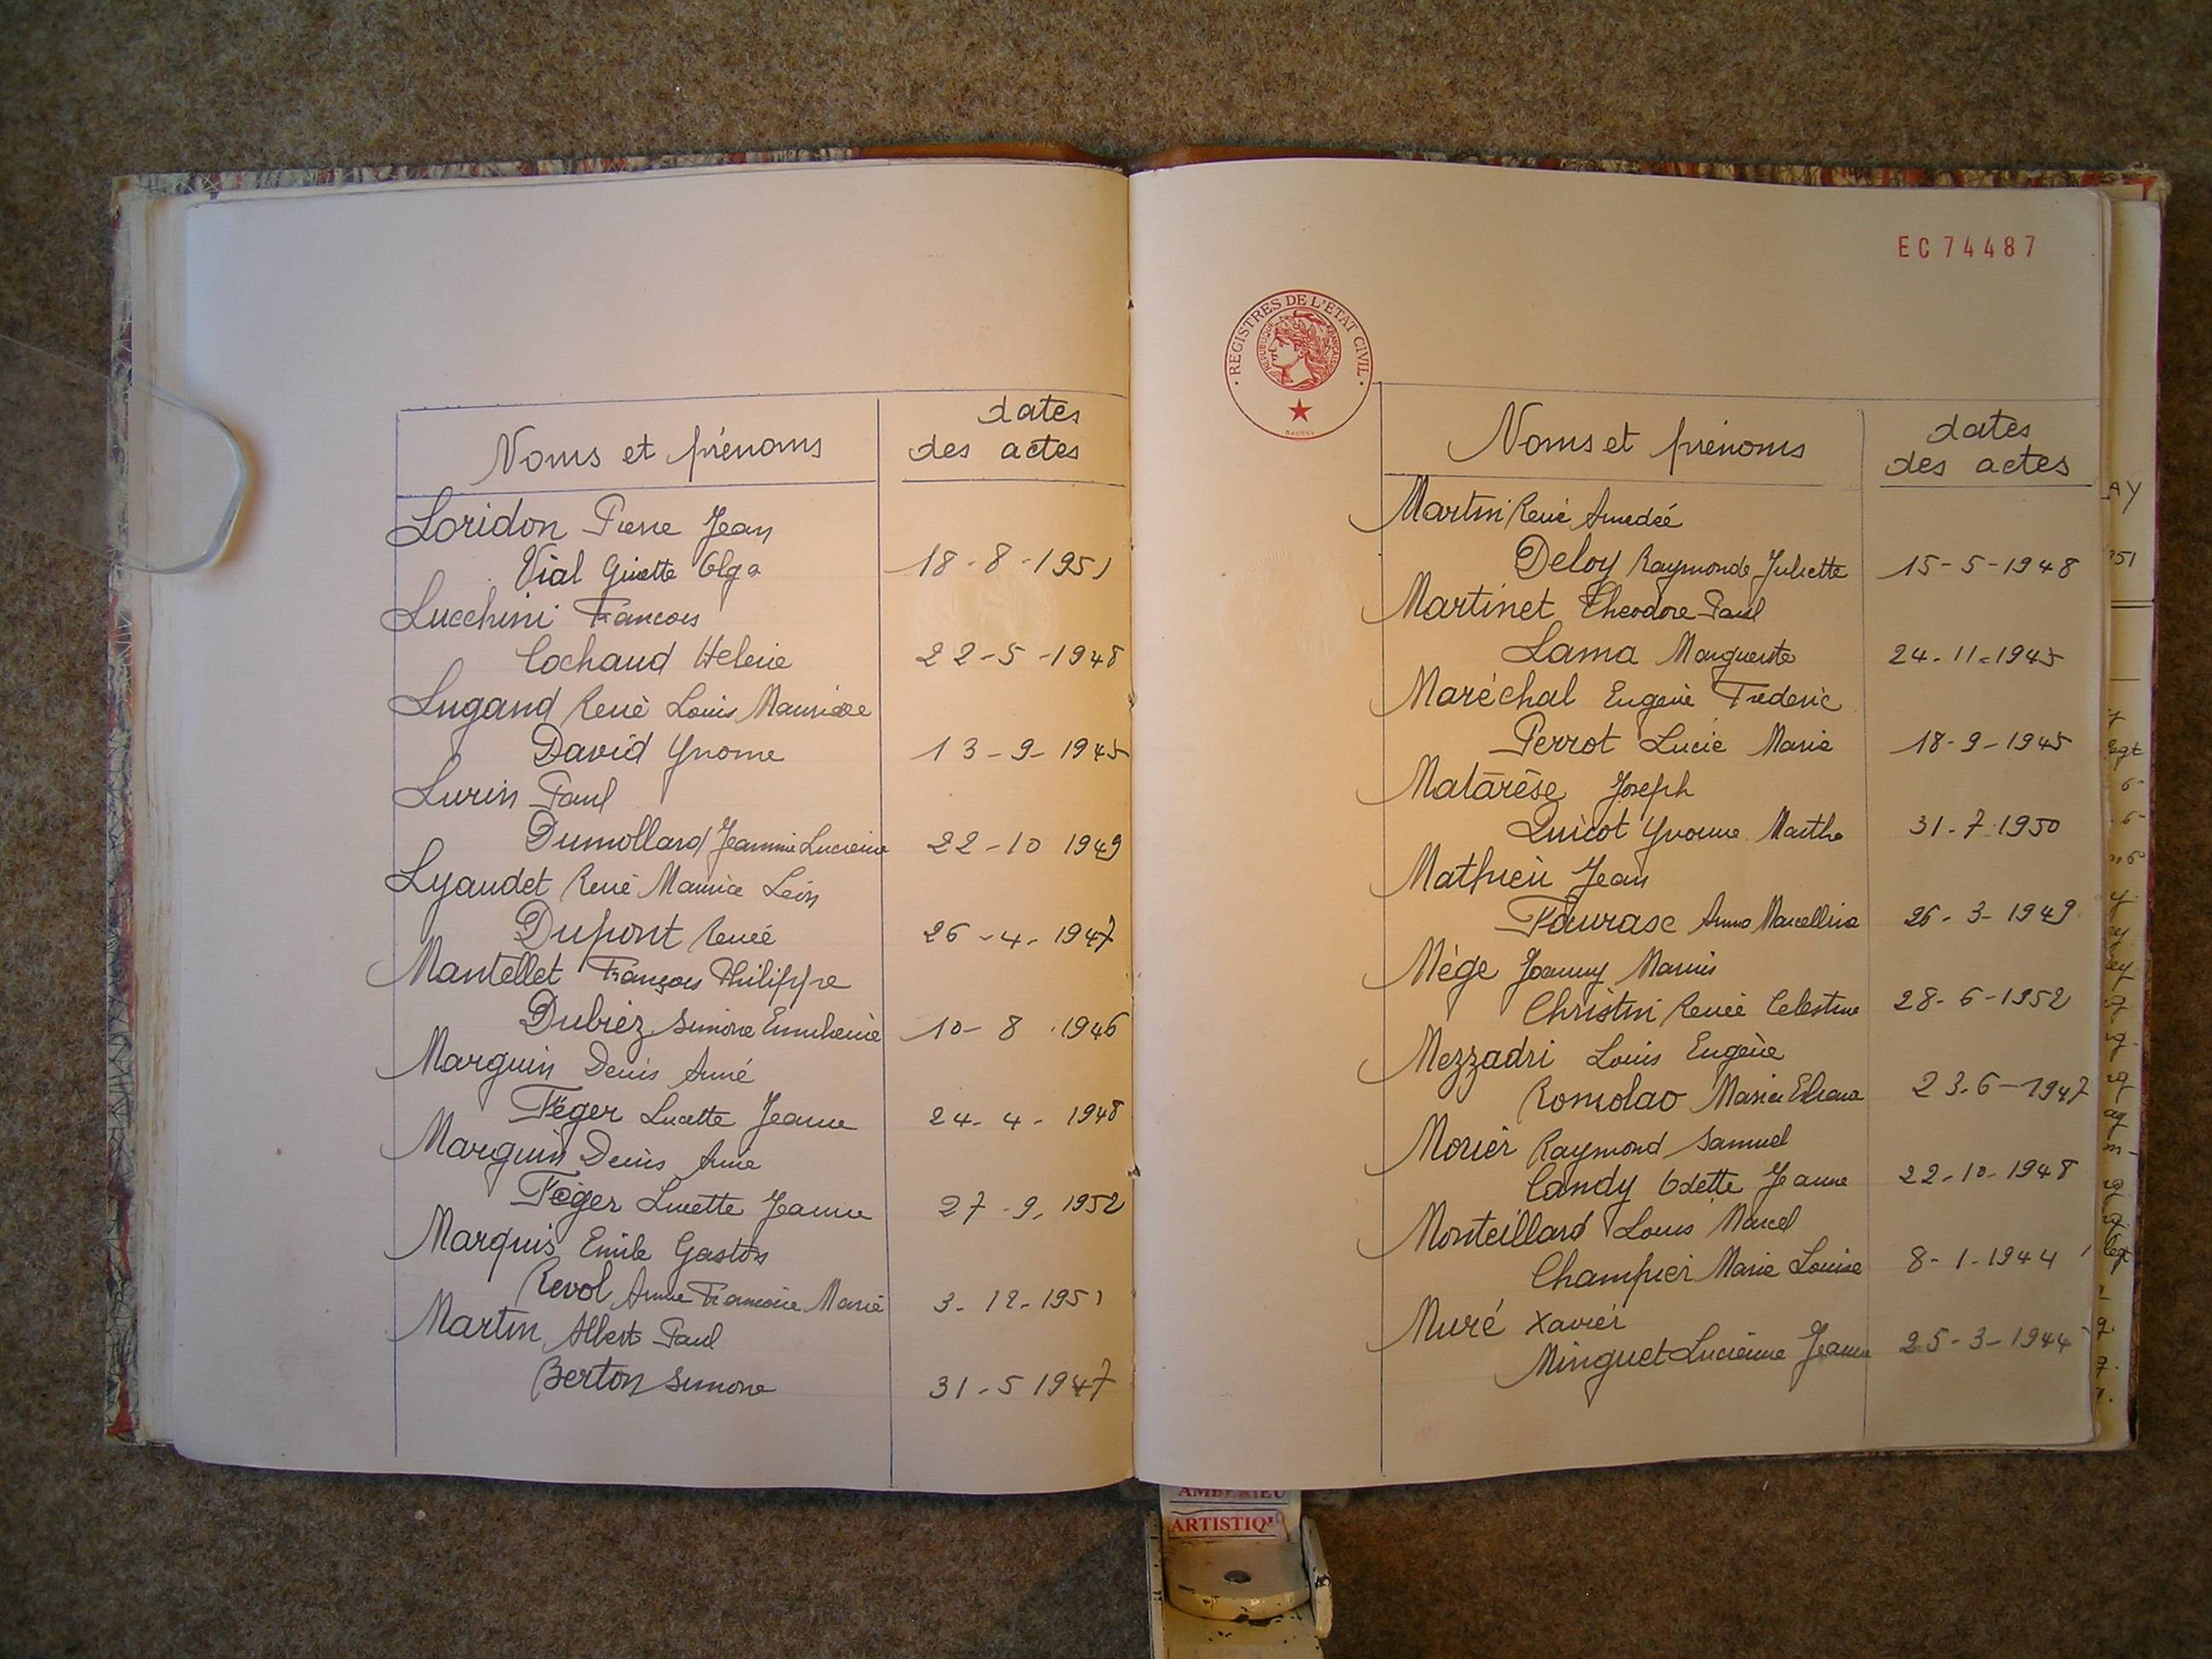 Noms et prénoms
dates
des actes
Loridon Pierre Jean
Vial Ginette Olga 18-8-1951
Lucchini Francois
Cochaud Helene 22-5-1948
Lugand René Louis Maurice
David Yvonne 13-9-1945
Lurin Paul
Dumollard Jeannine Lucienne 22-10 1949
Lyaudet René Maurice Léon
Dupont Renée 26-4-1947
Mantellet François Philippe
Dubiez Simone 10-8-1946
Marguin Denis Aimé
Féger Lucette Jeanne 24-4-1948
Marguin Denis Aimé
Féger Lucette Jeanne 27-9-1952
Marquis Emile Gaston
Revol Anne Francoise Marie 3-12-1951
Martin Albert Paul
Berton Simone 31-5 1947
EC 74487
REGISTRES DE L'ETAT CIVIL
REPUBLIQUE FRANÇAISE
Noms et prénoms
dates
des actes
Martin René Amedée
Deloy Raymonde Juliette 15-5-1948
Martinet Theodore Paul
Lama Marguerite 24-11-1945
Maréchal Eugène Frederic
Perrot Lucie Marie 18-9-1945
Matarèse Joseph
Quicot Yvonne Marthe 31-7-1950
Mathieu Jean
Faurase Anna Marcelline 26-3-1949
Mège Joanny Marius
Christin Renée Celestine 28-6-1952
Mezzadri Louis Eugène
Romolao Maria 23-6-1947
Morier Raymond Samuel
Candy Odette Jeanne 22-10-1948
Monteillard Louis Marcel
Champier Marie Louise 8-1-1944
Muré Xavier
Minguet Lucienne Jeanne 25-3-1944
AMBERIEU
ARTISTIQ